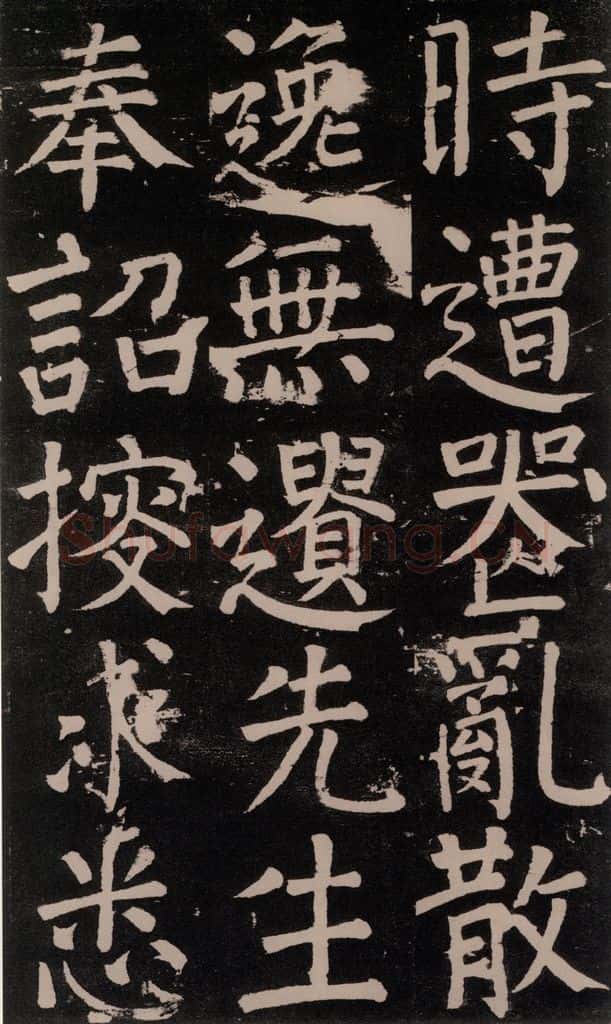 時遭喪亂散
逸無遺先生
奉詔搜求悉
Shufawang.CN